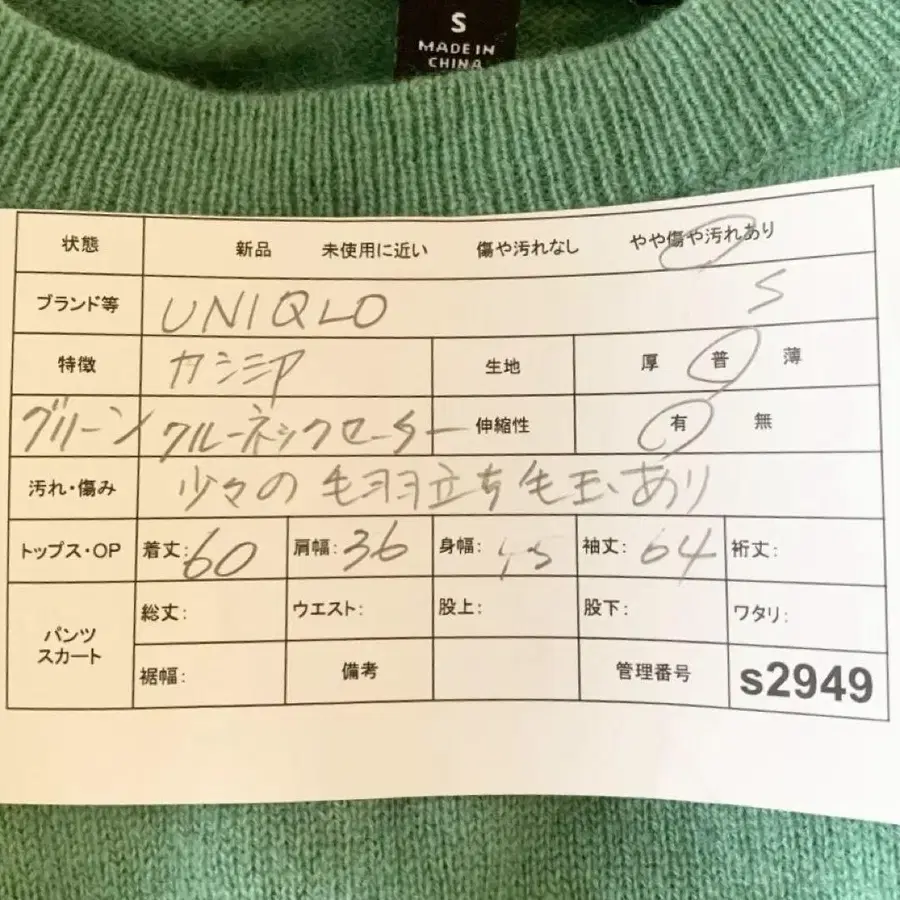 S
MADE IN
CHINA
状態 新品 未使用に近い 傷や汚れなし やや傷や汚れあり
ブランド等 UNIQLO S
特徴 カシミヤ 生地 厚 普 薄
グリーン クルーネックセーター 伸縮性 有 無
汚れ・傷み 少々の毛羽立ち毛玉あり
トップス・OP 着丈: 60 肩幅: 36 身幅: 袖丈: 64 裄丈:
パンツ
スカート
総丈: ウエスト: 股上: 股下: ワタリ:
裾幅: 備考 管理番号 s2949